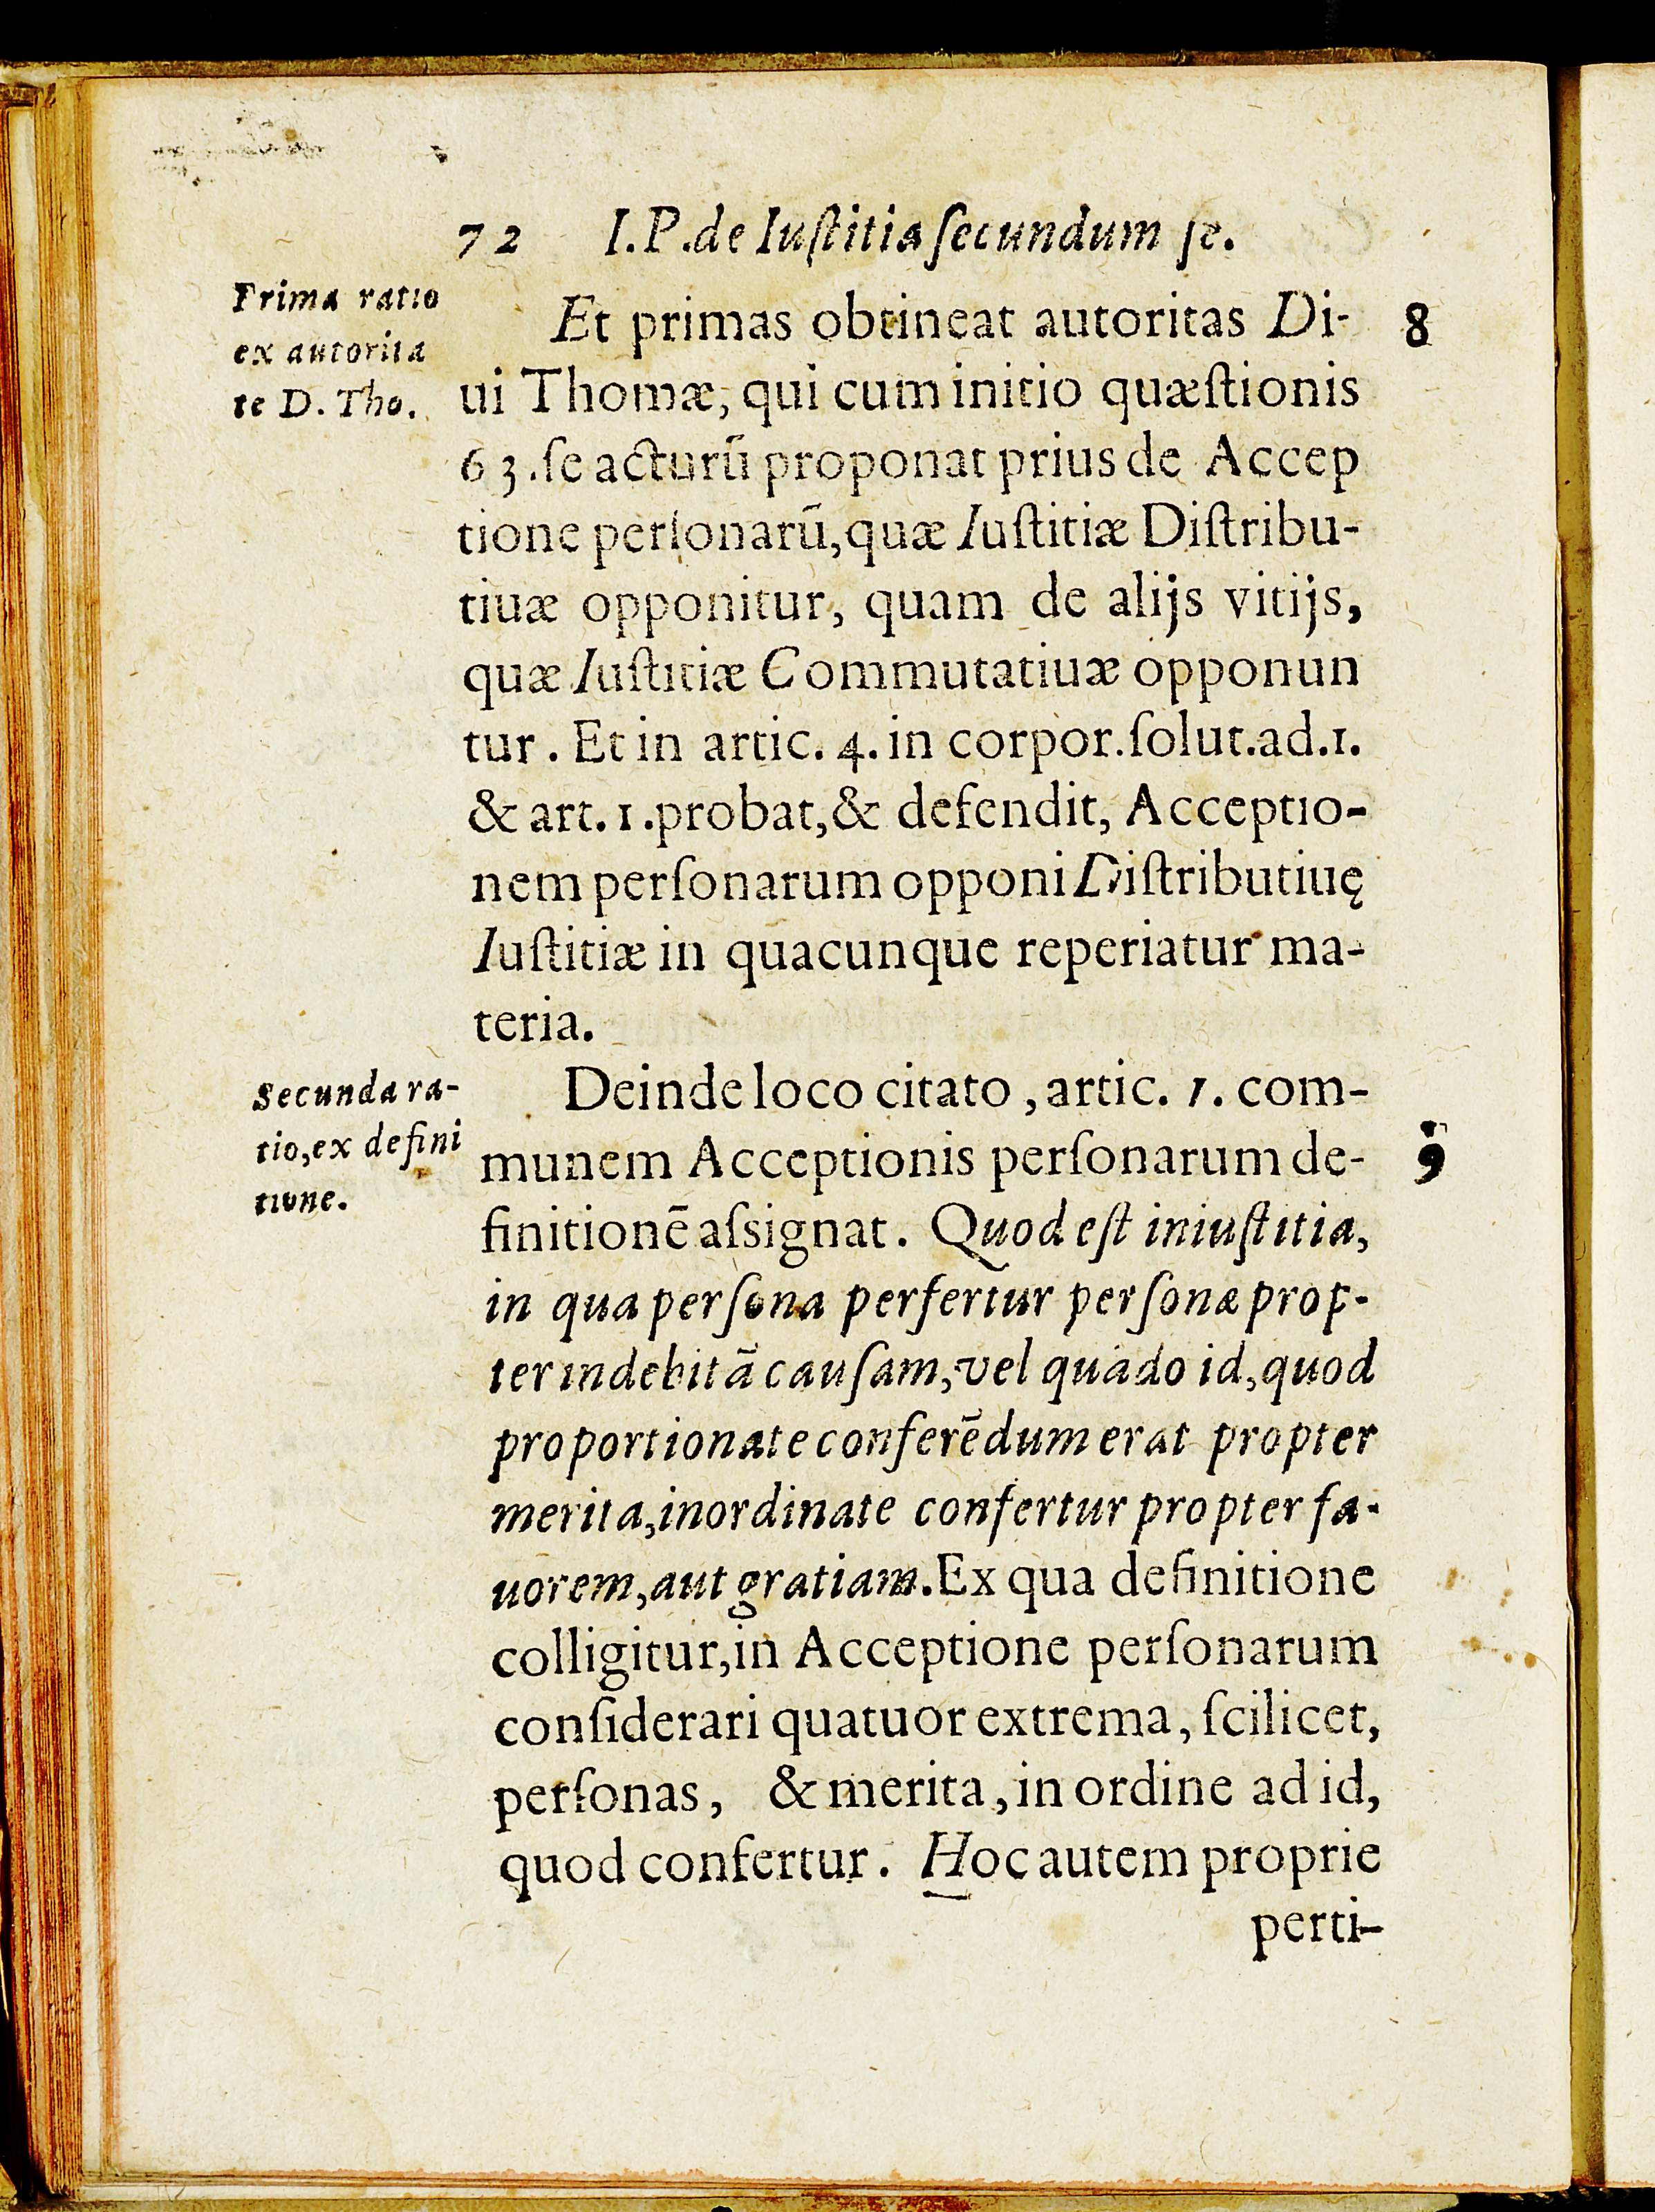 72 I.P.de Iuſtitia ſecundum ſe.
Prima ratio
ex autorita
te D. Tho.
Et primas obtineat autoritas Di- 8
ui Thomæ, qui cum initio quæſtionis
63.ſe acturū proponat prius de Accep
tione perſonarū,quæ Iuſtitiæ Diſtribu-
tiuæ opponitur, quam de alijs vitijs,
quæ Iuſtitiæ Commutatiuæ opponun
tur. Et in artic. 4. in corpor.ſolut.ad.1.
& art. 1.probat,& defendit, Acceptio-
nem perſonarum opponi Diſtributiuę
Iuſtitiæ in quacunque reperiatur ma-
teria.
Secunda ra-
tio,ex defini
tione.
Deinde loco citato, artic. 1. com-
munem Acceptionis perſonarum de- 9
finitionē aſsignat. Quod eſt iniuſtitia,
in qua perſona perfertur perſonæ prop-
ter indebitā cauſam,vel quādo id,quod
proportionate conferēdum erat propter
merita,inordinate confertur propter fa-
uorem,aut gratiam.Ex qua definitione
colligitur,in Acceptione perſonarum
conſiderari quatuor extrema, ſcilicet,
perſonas, & merita, in ordine ad id,
quod confertur. Hoc autem proprie
perti-